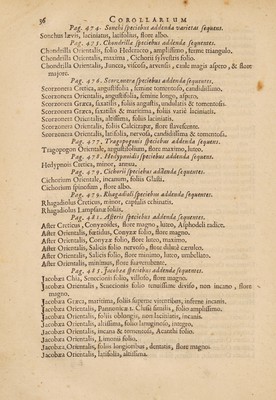 36 COROLLARIUM
Pag. 474. Sonchi speciebus addenda varietas sequens.
Sonchus lævis, laciniatus, latifolius, flore albo.
Pag. 475. Chondrillæ speciebus addenda sequentes.
Chondrilla Orientalis, folio Hederaceo, amplissimo, ferme triangulo.
Chondrilla Orientalis, maxima, Cichorii sylvestris folio.
Chondrilla Orientalis, Juncea, viscosa, arvensis, caule magis aspero, & flore
majore.
Pag. 476. Scorzonera speciebus addenda sequentes.
Scorzonera Cretica, angustifolia, semine tomentoso, candidissimo.
Scorzonera Orientalis, angustifolia, semine longo, aspero.
Scorzonera Græca, saxatilis, foliis angustis, undulatis & tomentosis.
Scorzonera Græca, saxatilis & maritima, foliis varie laciniatis.
Scorzonera Orientalis, altissima.
Scorzonera Orientalis, foliis Calcitrapæ, flore flavescente.
Scorzonera Orientalis, latifolia, nervosa, candidissima & tomentosa.
Pag. 477. Tragopogonis speciebus addenda sequens.
Tragopogon Orientale, angustifolium, flore maximo, luteo.
Pag. 478. Hedypnoidis speciebus addenda sequens.
Hedypnois Cretica, minor, annua.
Pag. 479. Cichorii speciebus addenda sequentes.
Cichorium Orientale, incanum, foliis Glasti.
Cichorium spinosum, flore albo.
Pag. 479. Rhagadioli speciebus addenda sequentes.
Rhagadiolus Creticus, minor, capitulis echinatis.
Rhagadiolus Lampsanæ foliis.
Pag. 481. Asteris speciebus addenda sequentes.
Aster Creticus, Conyzoides, flore magno, luteo, Asphodeli radice.
Aster Orientalis, fœtidus, Conyzæ folio, flore magno.
Aster Orientalis, Conyzæ folio, flore luteo, maximo.
Aster Orientalis, Salicis folio nervoso, flore dilutè cæruleo.
Aster Orientalis, Salicis folio, flore minimo, luteo, umbellato.
Aster Orientalis, minimus, flore suaverubente.
Pag. 485. Jacobæa speciebus addenda sequentes.
Jacobæa Chia, Senecionis folio, villoso, flore magno.
Jacobæa Orientalis, Senecionis folio tenuissimè diviso, non incano, flore
magno.
Jacobæa Græca, maritima, foliis superne virentibus, inferne incanis.
Jacobæa Orientalis, Pannonicæ I. Clusii similis, folio amplissimo.
Jacobæa Orientalis, foliis oblongis, non laciniatis, incanis.
Jacobæa Orientalis, altissima, folio lanuginoso, integro.
Jacobæa Orientalis, incana & tomentosa, Acanthi folio.
Jacobæa Orientalis, Limonii folio.
Jacobæa Orientalis, foliis longioribus, dentatis, flore magno.
Jacobæa Orientalis, latifolia, altissima.